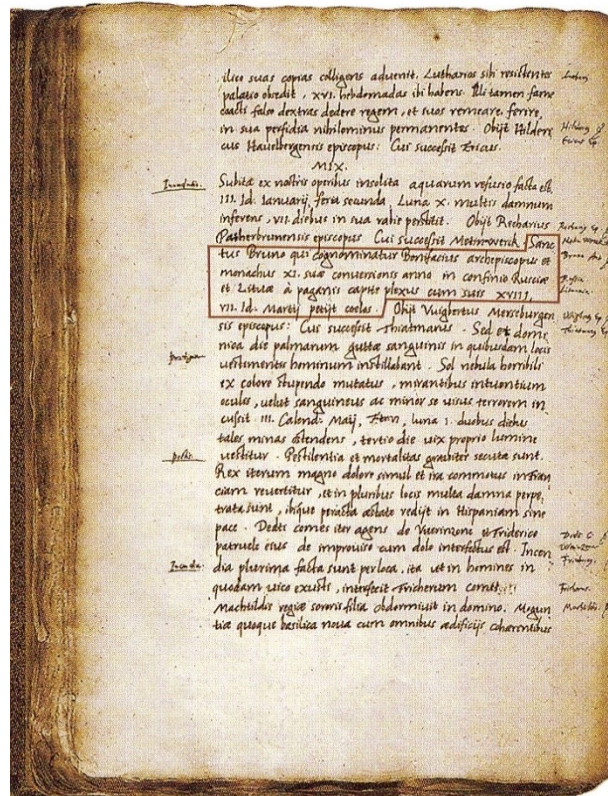 ilico suas copias colligens advenit. Lutharios sibi resistentes
palatio obsedit, xvi. hebdomadas ibi habens. Illi tamen fame
coacti falso dextras dedere regem, et suos remeare, ferire,
in sua perfidia nihilominus permanentes. Obijt Hilderi
cus Havelbergensis episcopus: Cui successit Ericus.
MIX.
Inundatio.
Subitæ ex nostris operibus insolita aquarum refusio facta est
III. Id. Ianuarij, feria secunda, Luna x. multis damnum
inferens, vii. diebus in sua rabie perstitit. Obijt Recharius
Patherbrunensis episcopus Cui successit Meinwerck. Sanc
tus Bruno qui cognominatur Bonifacius archepiscopus et
monachus xi. suæ conversionis anno in confinio Rusciæ
et Lituæ à paganis capite plexus cum suis xviii,
vii. Id. Martij petijt coelos. Obijt Vuigbertus Merseburgen
sis episcopus: Cui successit Thiatmarus. Sed et domi
nica die palmarum guttæ sanguinis in quibusdam locis
vestimentis hominum instillabant. Sol nebula horribili
ex colore stupendo mutatus, mirantibus intuentium
oculis, velut sanguineus ac minor se visus terrorem in
cussit. III. Calend. Maij, luna 1. duobus diebus
tales minas ostendens, tertio die vix proprio lumine
pestis.
vestitur. Pestilentia et mortalitas graviter secuta sunt.
Rex iterum magno dolore simul et ira commotus in Fran
ciam revertitur, et in pluribus locis multa damna perpe
trata sunt, ibique peracta æstate redijt in Hispaniam sine
pace. Dedts comes iter agens de Vuerinzone et Friderico
patruele eius de improviso cum dolo interfectus est. Incen
Incendia.
dia plurima facta sunt per loca, ita ut in homines in
quodam vico exusti, interfecit Fricherum comit
Machtildis regiæ sororis filia obdormivit in domino. Mogun
tiæ quoque basilica nova cum omnibus ædificijs cohærentibus